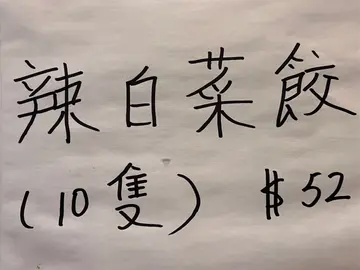 辣白菜餃
(10隻) $52